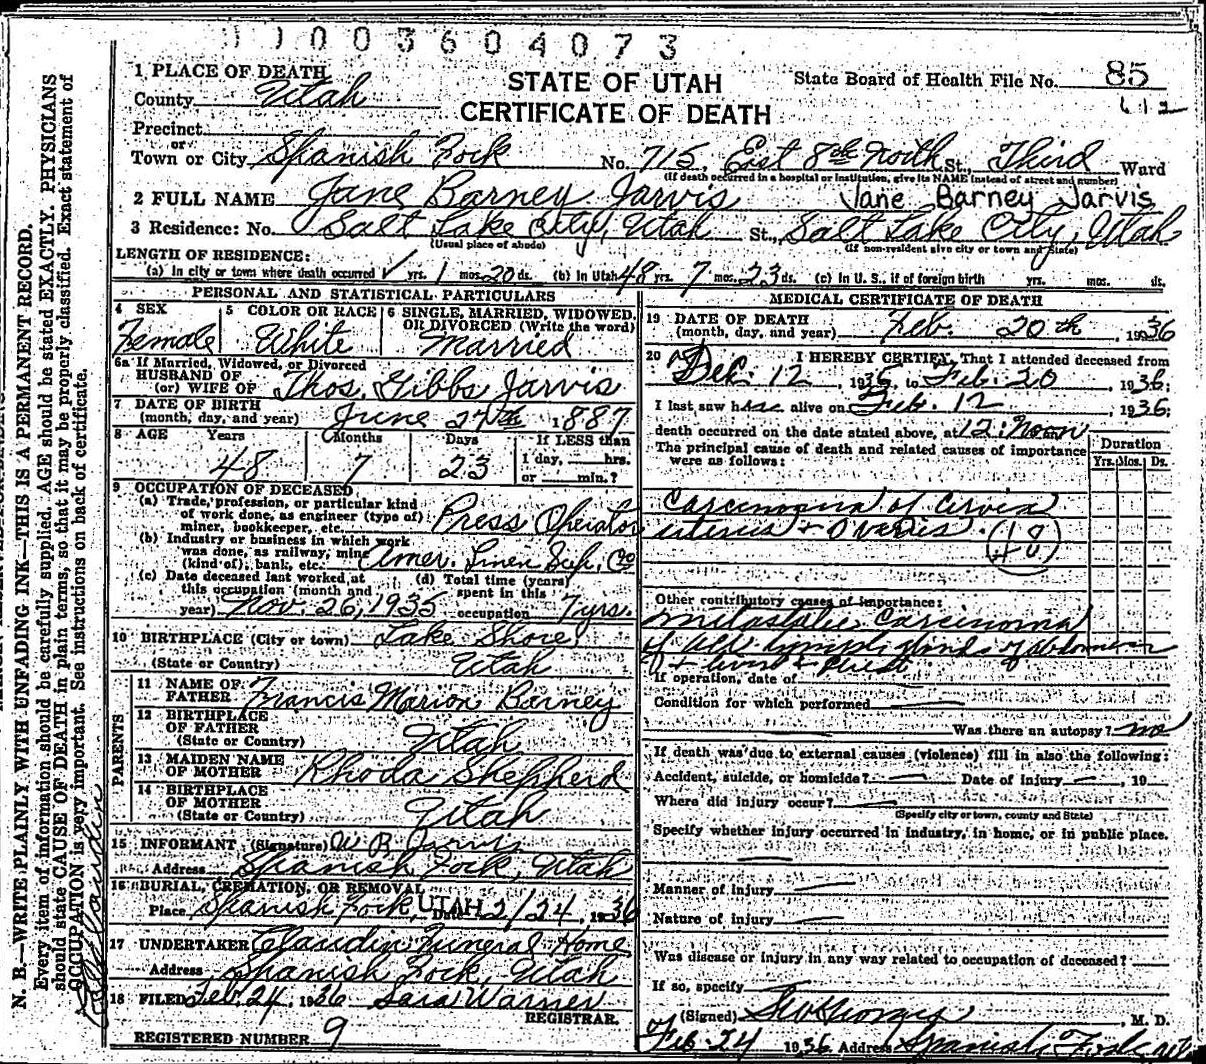 0 0 3 6 0 4 0 7 3
STATE OF UTAH
CERTIFICATE OF DEATH
State Board of Health File No. 85
1 PLACE OF DEATH
County Utah
Precinct
or
Town or City Spanish Fork No. 715, East 8th North St., Third Ward
(If death occurred in a hospital or institution, give its NAME instead of street and number)
2 FULL NAME Jane Barney Jarvis Jane Barney Jarvis
3 Residence: No. Salt Lake City, Utah St., Salt Lake City, Utah
(Usual place of abode) (If non-resident give city or town and State)
LENGTH OF RESIDENCE:
(a) In city or town where death occurred yrs. 1 mos. 20 ds. (b) In Utah 48 yrs. 7 mos. 23 ds. (c) In U. S., if of foreign birth yrs. mos. ds.
PERSONAL AND STATISTICAL PARTICULARS
4 SEX Female
5 COLOR OR RACE White
6 SINGLE, MARRIED, WIDOWED, OR DIVORCED (Write the word) Married
6a If Married, Widowed, or Divorced
HUSBAND OF
(or) WIFE OF Thos. Gibbs Jarvis
7 DATE OF BIRTH
(month, day, and year) June 27th 1887
8 AGE Years Months Days If LESS than
48 7 23 1 day, hrs.
or min.?
9 OCCUPATION OF DECEASED
(a) Trade, profession, or particular kind
of work done, as engineer (type of)
miner, bookkeeper, etc. Press Operator
(b) Industry or business in which work
was done, as railway, mine
(kind of), bank, etc. Amer. Linen Sup. Co
(c) Date deceased last worked at
this occupation (month and
year) Nov. 26, 1935
(d) Total time (years)
spent in this
occupation 7 yrs.
10 BIRTHPLACE (City or town) Lake Shore
(State or Country) Utah
PARENTS
11 NAME OF
FATHER Francis Marion Barney
12 BIRTHPLACE
OF FATHER
(State or Country) Utah
13 MAIDEN NAME
OF MOTHER Rhoda Shepherd
14 BIRTHPLACE
OF MOTHER
(State or Country) Utah
15 INFORMANT (Signature) W B Jarvis
Address Spanish Fork, Utah
16 BURIAL, CREMATION, OR REMOVAL
Place Spanish Fork, UTAH Date 2/24, 1936
17 UNDERTAKER Claudin Funeral Home
Address Spanish Fork, Utah
18 FILED Feb. 24, 1936 Sara Warner
REGISTRAR.
REGISTERED NUMBER 9
MEDICAL CERTIFICATE OF DEATH
19 DATE OF DEATH
(month, day, and year) Feb. 20th, 1936
20 I HEREBY CERTIFY, That I attended deceased from
Dec. 12, 1935, to Feb. 20, 1936;
I last saw her alive on Feb. 12, 1936;
death occurred on the date stated above, at 12:Noon
The principal cause of death and related causes of importance
were as follows:
Duration
Yrs. Mos. Ds.
Carcinoma of Cervix
uterus + Ovaries. (48)
Other contributory causes of importance:
Metastatic Carcinoma
of all lymph glands of abdomen
+ liver + chest
If operation, date of
Condition for which performed
Was there an autopsy? no
If death was due to external causes (violence) fill in also the following:
Accident, suicide, or homicide? Date of injury , 19
Where did injury occur?
(Specify city or town, county and State)
Specify whether injury occurred in industry, in home, or in public place.
Manner of injury
Nature of injury
Was disease or injury in any way related to occupation of deceased?
If so, specify
(Signed) , M. D.
Feb. 24 1936 Address Spanish Fork
N. B.—WRITE PLAINLY WITH UNFADING INK—THIS IS A PERMANENT RECORD.
Every item of information should be carefully supplied. AGE should be stated EXACTLY. PHYSICIANS
should state CAUSE OF DEATH in plain terms, so that it may be properly classified. Exact statement of
OCCUPATION is very important. See instructions on back of certificate.